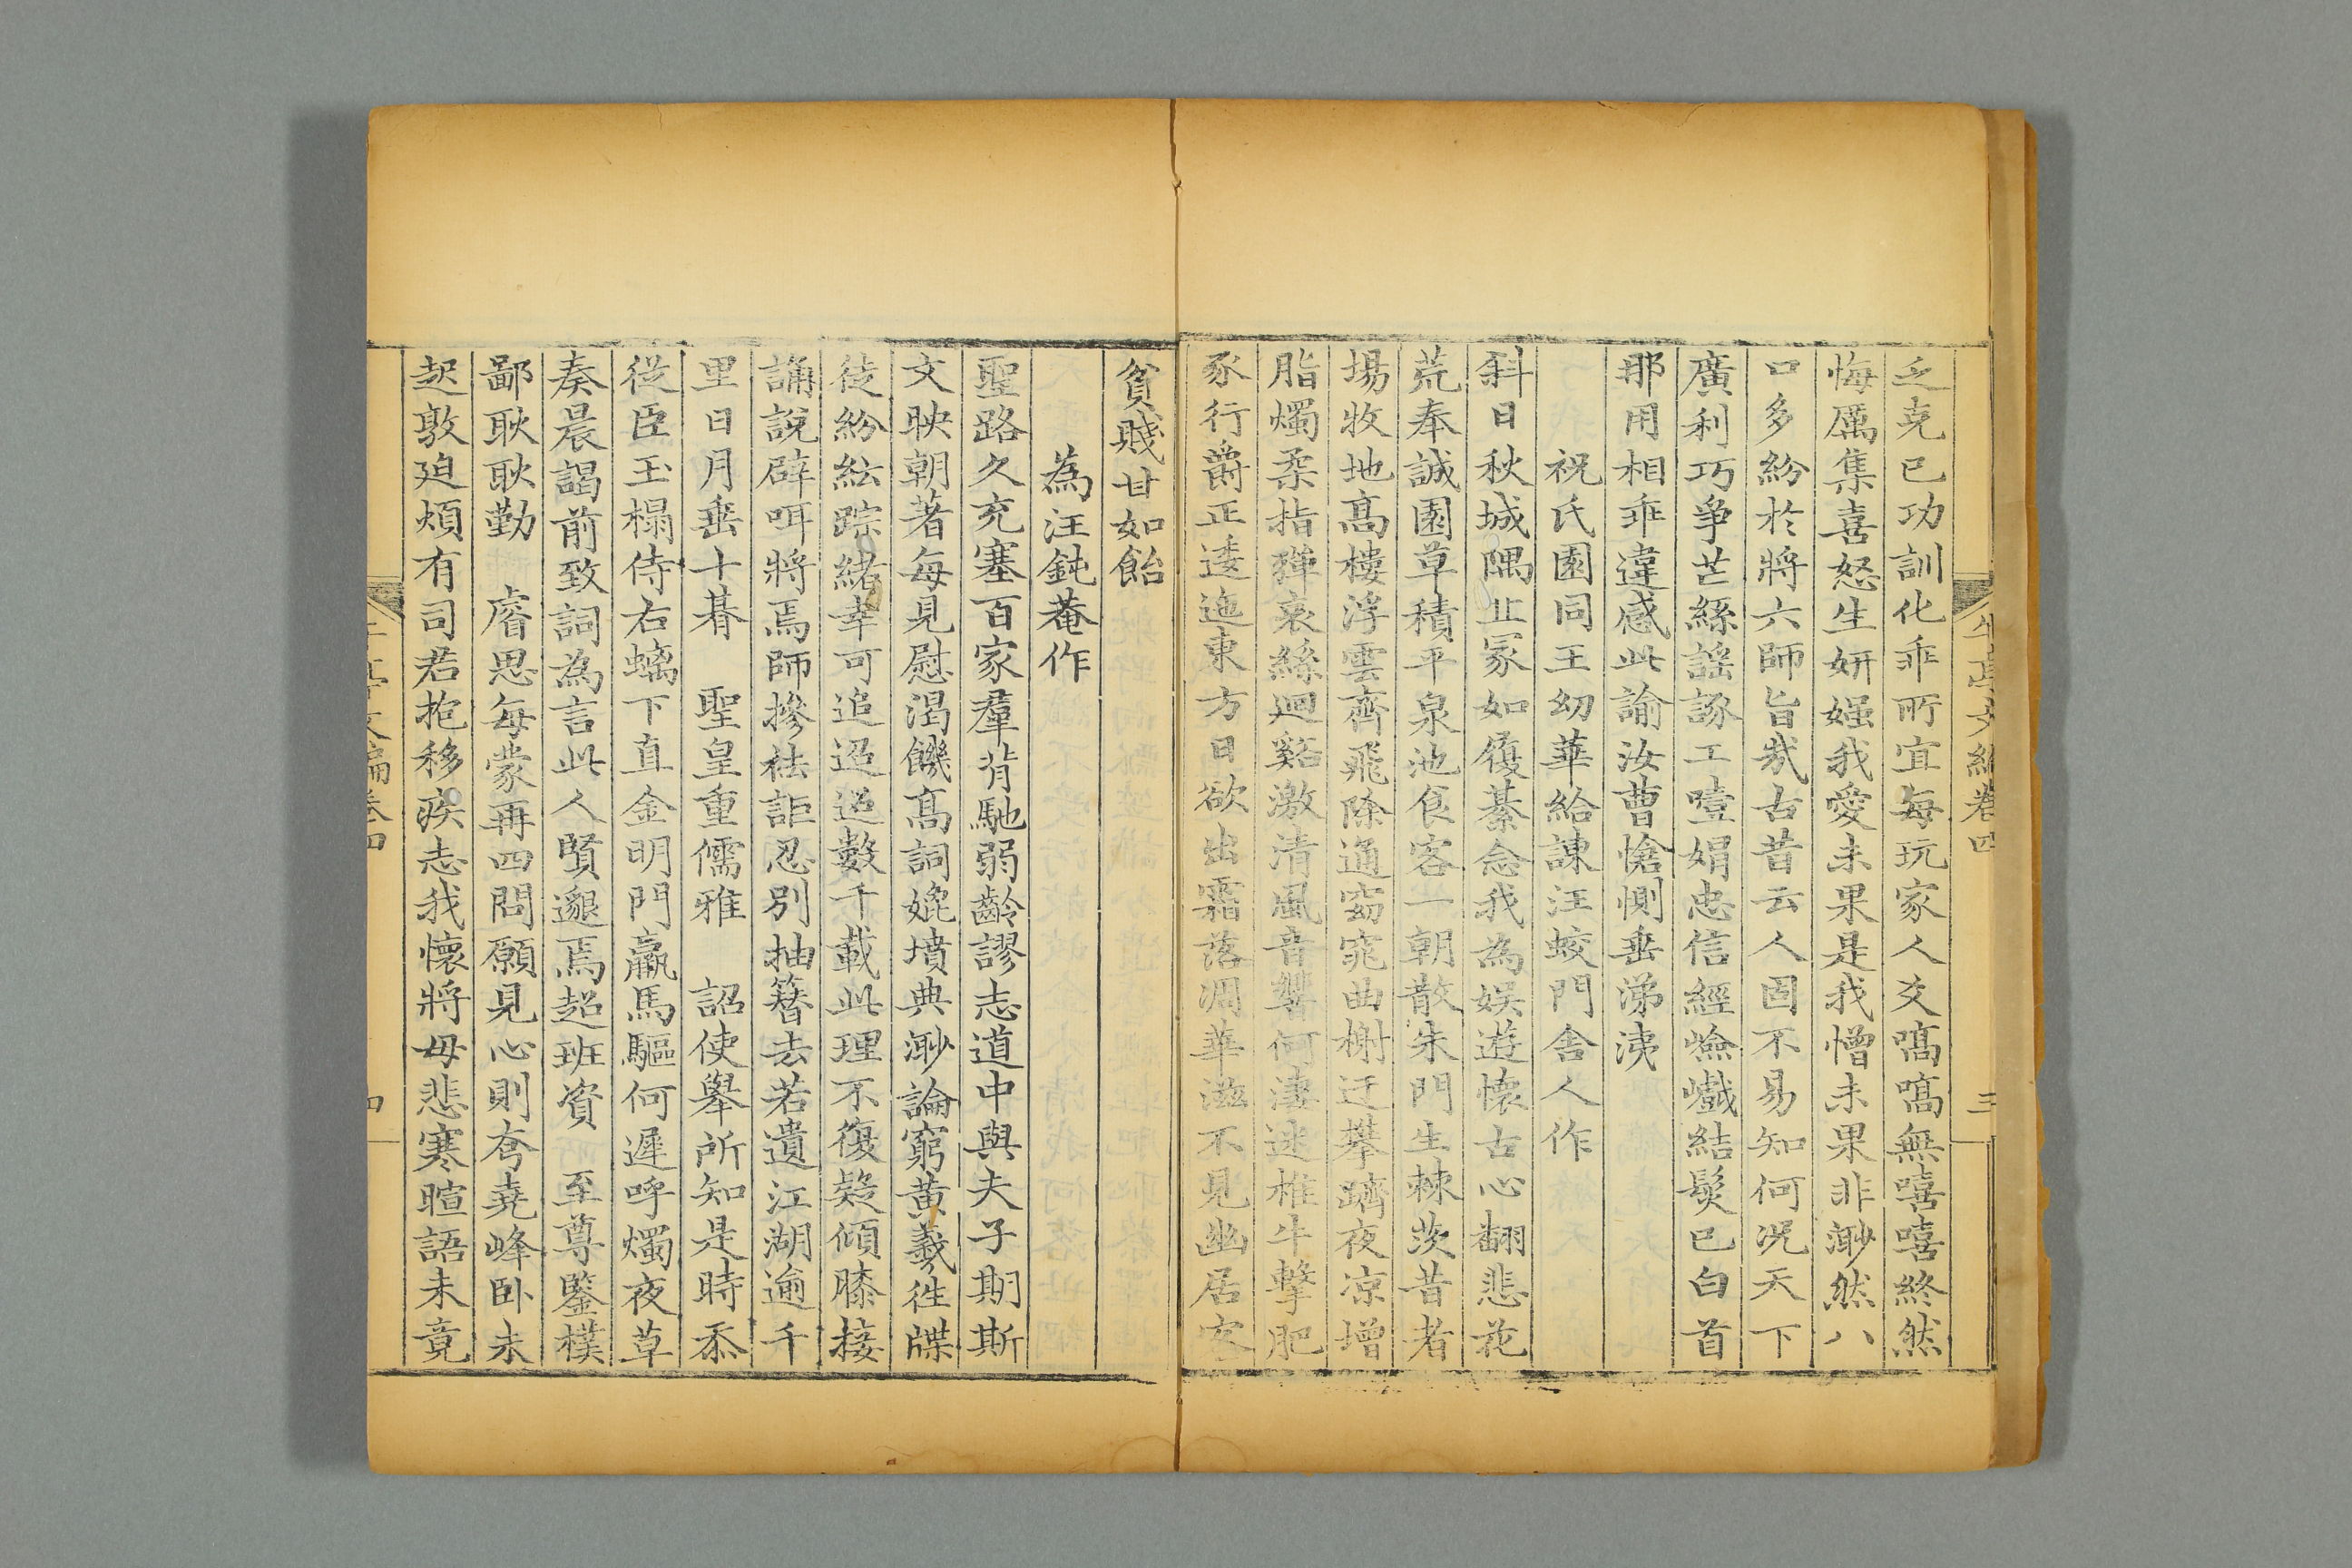 午亭文編卷四
三
乏克己功訓化乖所宜每玩家人爻嗃嗃無嘻嘻終然
悔厲集喜怒生妍媸我愛未果是我憎未果非渺然八
口多紛於將六師旨哉古昔云人固不易知何況天下
廣利巧爭芒絲謠諑工噎娟忠信經憸巇結髮已白首
那用相乖違感此諭汝曹愴惻垂涕洟
祝氏園同王幼華給諫汪蛟門舍人作
斜日秋城隅丘冢如履綦念我為娛遊懷古心翻悲花
荒奉誠園草積平泉池食客一朝散朱門生棘茨昔者
場牧地高樓浮雲齊飛除通窈窕曲榭迂攀躋夜凉增
脂燭柔指彈哀絲迴谿激清風音響何淒迷椎牛擊肥
豕行爵正逶迤東方日欲出霜落凋華滋不見幽居客
貧賤甘如飴
為汪鈍菴作
聖路久充塞百家羣背馳弱齡謬志道中與夫子期斯
文映朝著每見慰渴饑高詞媲墳典渺論窮黃羲往牒
徒紛紜踪緒幸可追迢迢數千載此理不復疑傾膝接
誦說辟咡將焉師摻袪詎忍別抽簪去若遺江湖逾千
里日月垂十朞　聖皇重儒雅　詔使舉所知是時忝
從臣玉榻侍右螭下直金明門羸馬驅何遲呼燭夜草
奏晨謁前致詞為言此人賢邈焉超班資　至尊鑒樸
鄙耿耿勤　睿思每蒙再四問願見心則夸堯峰卧未
起敦廹煩有司君抱移疾志我懷將母悲寒暄語未竟
午亭文編卷四
四